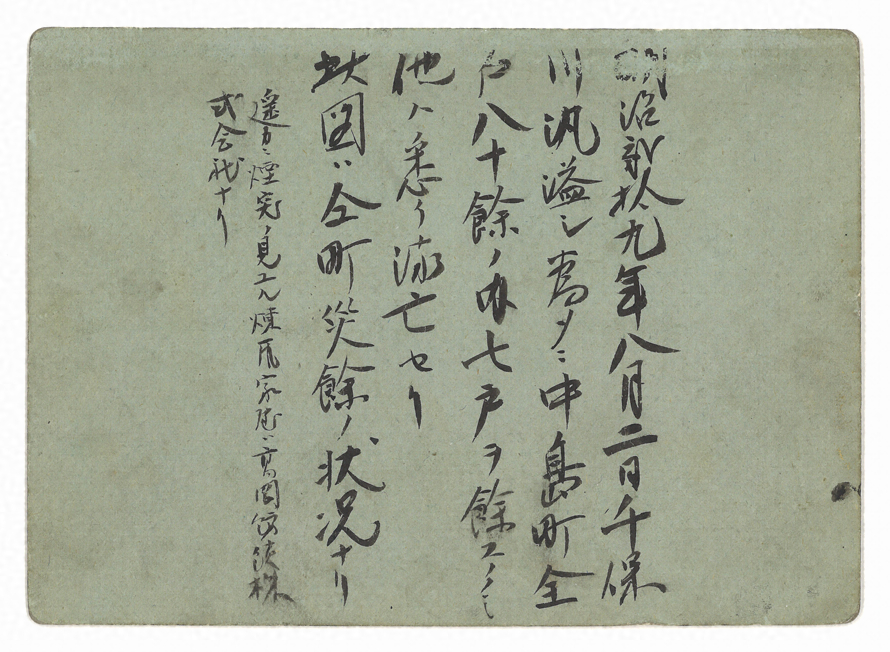 明治弐拾九年八月二日千保
川汎溢シ為メニ中島町全
戸八十餘ノ内七戸ヲ餘スノミ
他ハ悉ク流亡セリ
此図ハ仝町災餘ノ状況ナリ
遙カニ煙突ノ見エル煉瓦家屋ハ高岡紡績株
式会社ナリ